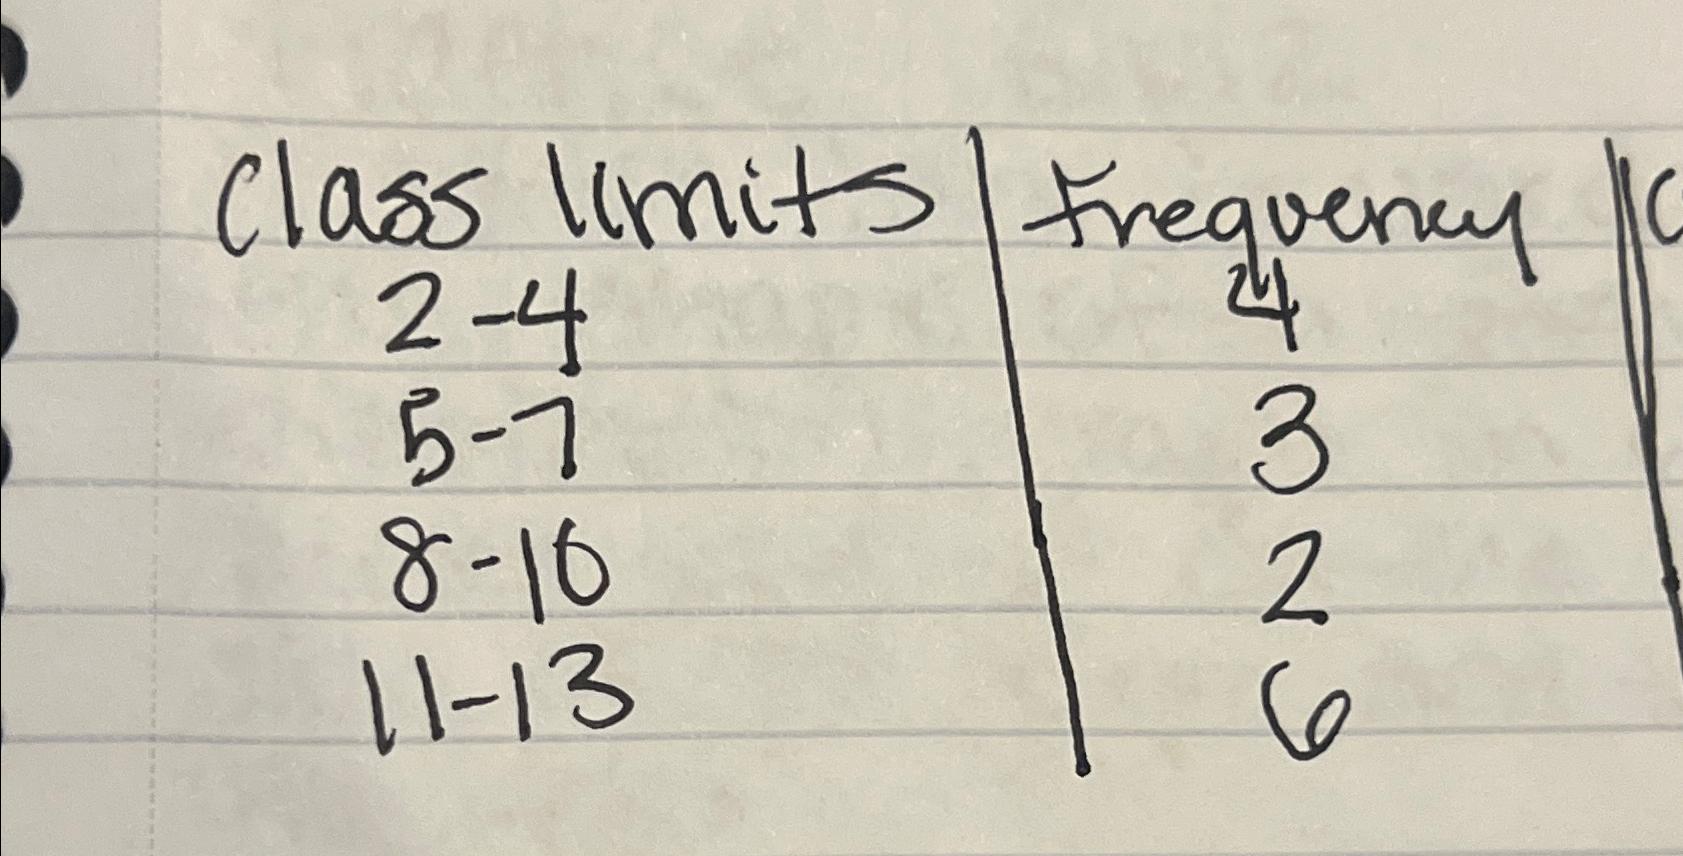 Class limits Frequency C
2-4 4
5-7 3
8-10 2
11-13 6